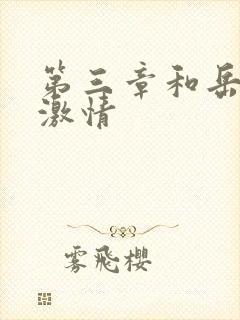 第三章和岳
激情
雾飛櫻